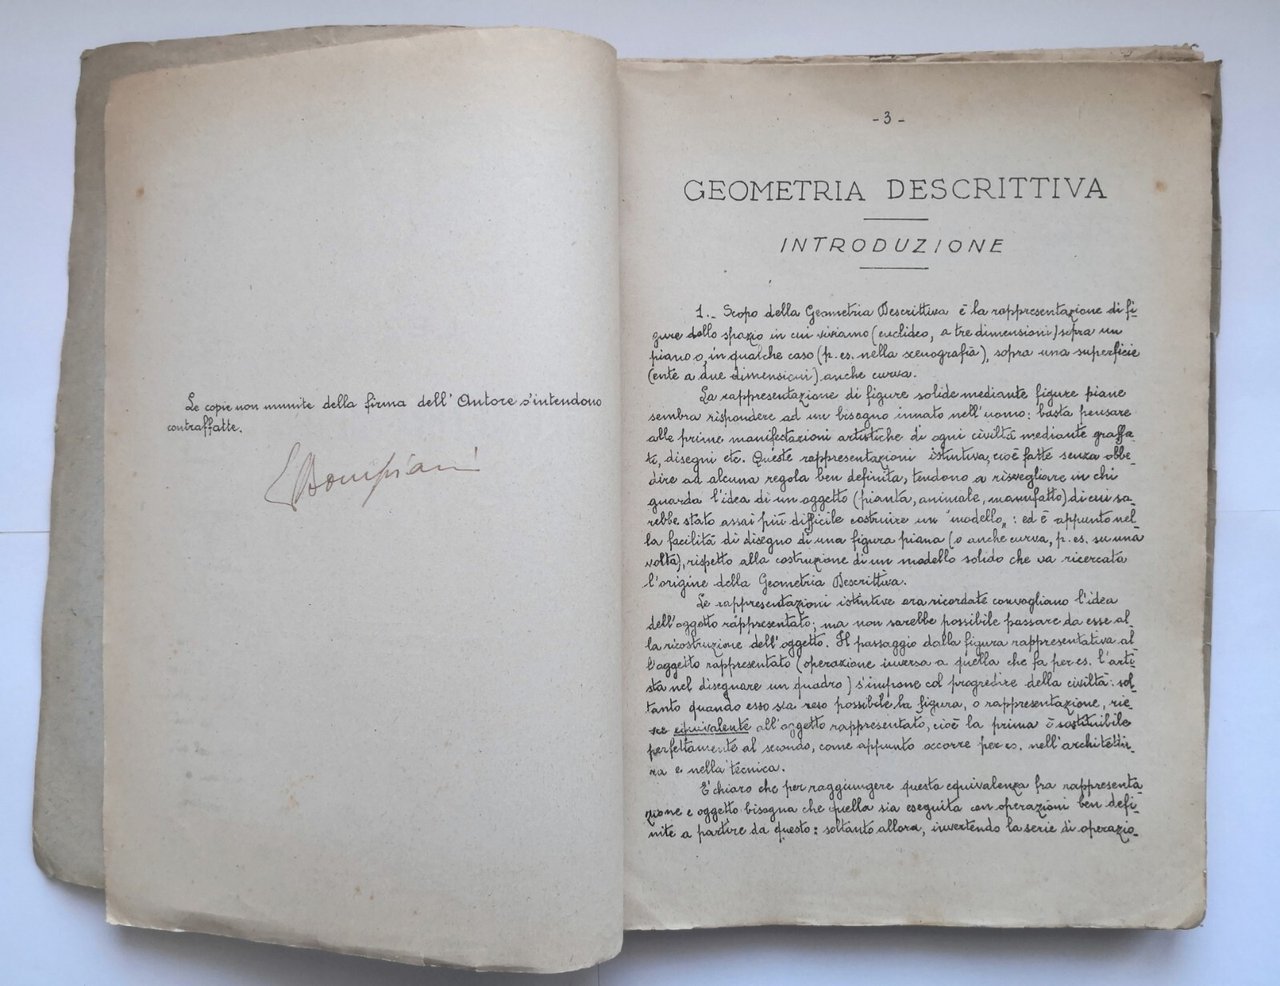 Le copie non munite della firma dell'Autore s'intendono
contraffatte.
- 3 -
GEOMETRIA DESCRITTIVA
INTRODUZIONE
1.- Scopo della Geometria Descrittiva è la rappresentazione di fi-
gure dello spazio in cui viviamo (euclideo, a tre dimensioni) sopra un
piano o, in qualche caso (p. es. nella scenografia), sopra una superficie
(ente a due dimensioni) anche curva.
La rappresentazione di figure solide mediante figure piane
sembra rispondere ad un bisogno innato nell'uomo: basta pensare
alle prime manifestazioni artistiche di ogni civiltà mediante graffi-
ti, disegni etc. Queste rappresentazioni istintive, cioè fatte senza obbe-
dire ad alcuna regola ben definita, tendono a risvegliare in chi
guarda l'idea di un oggetto (pianta, animale, manufatto) di cui sa-
rebbe stato assai più difficile costruire un "modello": ed è appunto nel-
la facilità di disegno di una figura piana (o anche curva, p. es. su una
volta), rispetto alla costruzione di un modello solido che va ricercata
l'origine della Geometria Descrittiva.
Le rappresentazioni istintive ora ricordate convogliano l'idea
dell'oggetto rappresentato; ma non sarebbe possibile passare da esse al-
la ricostruzione dell'oggetto. Il passaggio dalla figura rappresentativa al-
l'oggetto rappresentato (operazione inversa a quella che fa per es. l'arti-
sta nel disegnare un quadro) s'impone col progredire della civiltà: sol-
tanto quando esso sia reso possibile la figura, o rappresentazione, vie-
ne equivalente all'oggetto rappresentato, cioè la prima è sostituibile
perfettamente al secondo, come appunto occorre per es. nell'architettu-
ra e nella tecnica.
E' chiaro che per raggiungere questa equivalenza fra rappresenta-
zione e oggetto bisogna che quella sia eseguita con operazioni ben defi-
nite a partire da questo: soltanto allora, invertendo la serie di operazio-